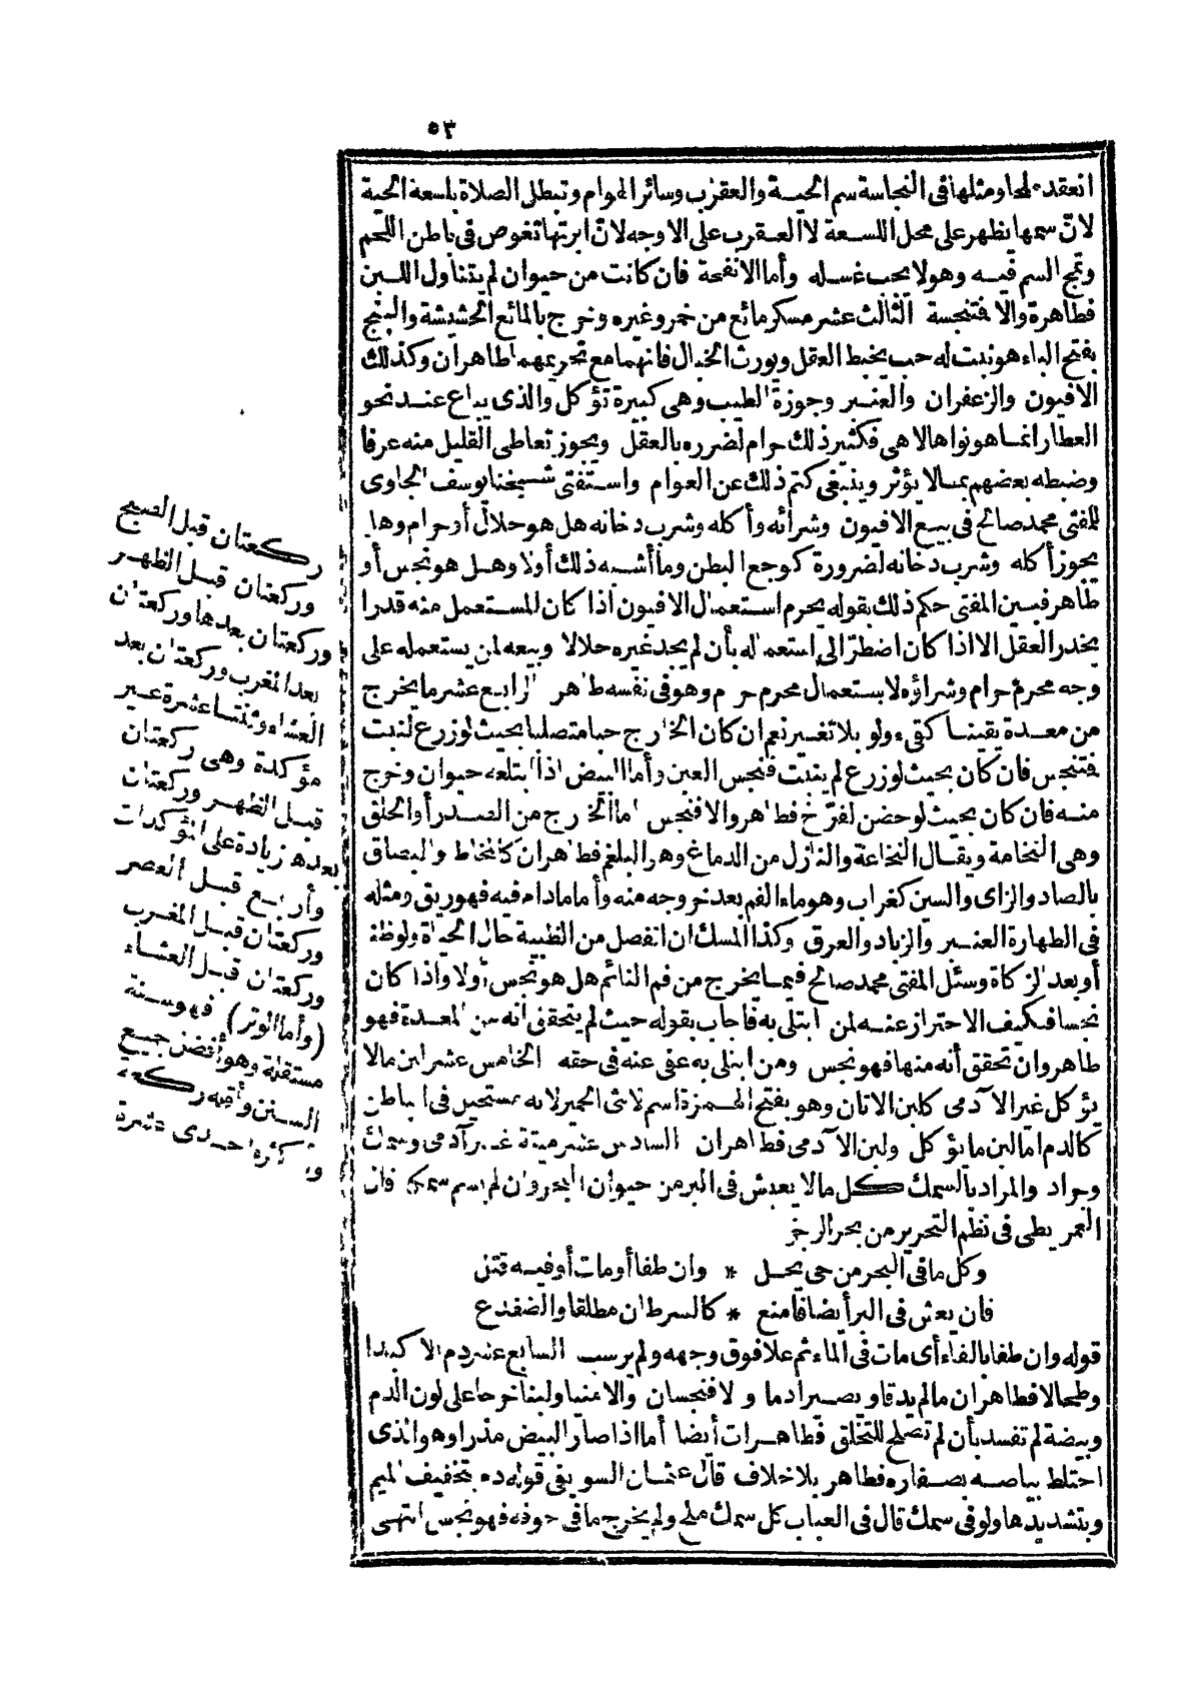 ٥٣
انعقد ملحا ومثلها في النجاسة سم الحية والعقرب وسائر الهوام وتبطل الصلاة بلسعة الحية
لان سمها يظهر على محل اللسعة لا العقرب على الاوجه لان ابرتها تغوص في باطن اللحم
وتمج السم فيه وهو لا يجب غسله وأما الانفحة فان كانت من حيوان لم يتناول اللبن
فطاهرة والا فنجسة الثالث عشر مسكر مائع من خمر وغيره وخرج بالمائع الحشيشة والبنج
بفتح الباء هو نبت له حب يخبط العقل ويورث الخبال فانهما مع تحريمهما طاهران وكذلك
الافيون والزعفران والعنبر وجوزة الطيب وهي كبيرة تؤكل والذي يباع عند نحو
العطار انما هو نواها لا هي فكثير ذلك حرام لضرره بالعقل ويجوز تعاطي القليل منه عرفا
وضبطه بعضهم بما لا يؤثر وينبغي كتم ذلك عن العوام واستفتى شيخنا يوسف الجاوي
للمفتي محمد صالح في بيع الافيون وشرائه وأكله وشرب دخانه هل هو حلال أو حرام وهل
يجوز أكله وشرب دخانه لضرورة كوجع البطن وما أشبه ذلك أولا وهل هو نجس أو
طاهر فبين المفتي حكم ذلك بقوله يحرم استعمال الافيون اذا كان المستعمل منه قدرا
يخدر العقل الا اذا كان اضطر الى استعماله بأن لم يجد غيره حلالا وبيعه لمن يستعمله على
وجه محرم حرام وشراؤه لاستعمال محرم حرام وهو في نفسه طاهر الرابع عشر ما يخرج
من معدة يقينا كقيء ولو بلا تغير نعم ان كان الخارج حبا متصلبا بحيث لو زرع لنبت
فمتنجس فان كان بحيث لو زرع لم ينبت فنجس العين وأما البيض اذا ابتلعه حيوان وخرج
منه فان كان بحيث لو حضن لفرخ فطاهر والا فنجس أما الخارج من الصدر أو الحلق
وهي النخامة ويقال النخاعة والنازل من الدماغ وهو البلغم فطاهران كالمخاط والبصاق
بالصاد والزاي والسين كغراب وهو ماء الفم بعد خروجه منه وأما ما دام فيه فهو ريق ومثله
في الطهارة العنبر والزباد والعرق وكذا المسك ان انفصل من الظبية حال الحياة ولو ظنا
أو بعد الزكاة وسئل المفتي محمد صالح فيما يخرج من فم النائم هل هو نجس أولا واذا كان
نجسا فكيف الاحتراز عنه لمن ابتلي به فأجاب بقوله حيث لم يتحقق أنه من المعدة فهو
طاهر وان تحقق أنه منها فهو نجس ومن ابتلي به عفي عنه في حقه الخامس عشر لبن ما لا
يؤكل غير الآدمي كلبن الاتان وهو بفتح الهمزة اسم لانثى الحمير لانه مستحيل في الباطن
كالدم أما لبن ما يؤكل ولبن الآدمي فطاهران السادس عشر ميتة غير آدمي وسمك
وجراد والمراد بالسمك كل ما لا يعيش في البر من حيوان البحر وان لم يسم سمكا قال
العمريطي في نظم التحرير من بحر الرجز
وكل ما في البحر من حي يحل * وان طفا أو مات أو فيه قتل
فان يعش في البر أيضا فامنع * كالسرطان مطلقا والضفدع
قوله وان طفا بالفاء أي مات في الماء ثم علا فوق وجهه ولم يرسب السابع عشر دم الا كبدا
وطحالا فطاهران ما لم يدقا ويصيرا دما والا فنجسان والا منيا ولبنا خرجا على لون الدم
وبيضة لم تفسد بأن لم تصلح للتخلق فطاهرات أيضا أما اذا صار البيض مذرا وهو الذي
اختلط بياضه بصفاره فطاهر بلا خلاف قال عثمان السويفي قوله دم بتخفيف الميم
وبتشديدها ولو في سمك قال في العباب كل سمك ملح ولم يخرج ما في جوفه فهو نجس انتهى
ركعتان قبل الصبح
وركعتان قبل الظهر
وركعتان بعدها وركعتان
بعد المغرب وركعتان بعد
العشاء وثنتا عشرة غير
مؤكدة وهي ركعتان
قبل الظهر وركعتان
بعدها زيادة على المؤكدات
وأربع قبل العصر
وركعتان قبل المغرب
وركعتان قبل العشاء
(وأما الوتر) فهو سنة
مستقلة وهو أفضل جميع
السنن وأقله ركعة
وأكثره احدى عشرة